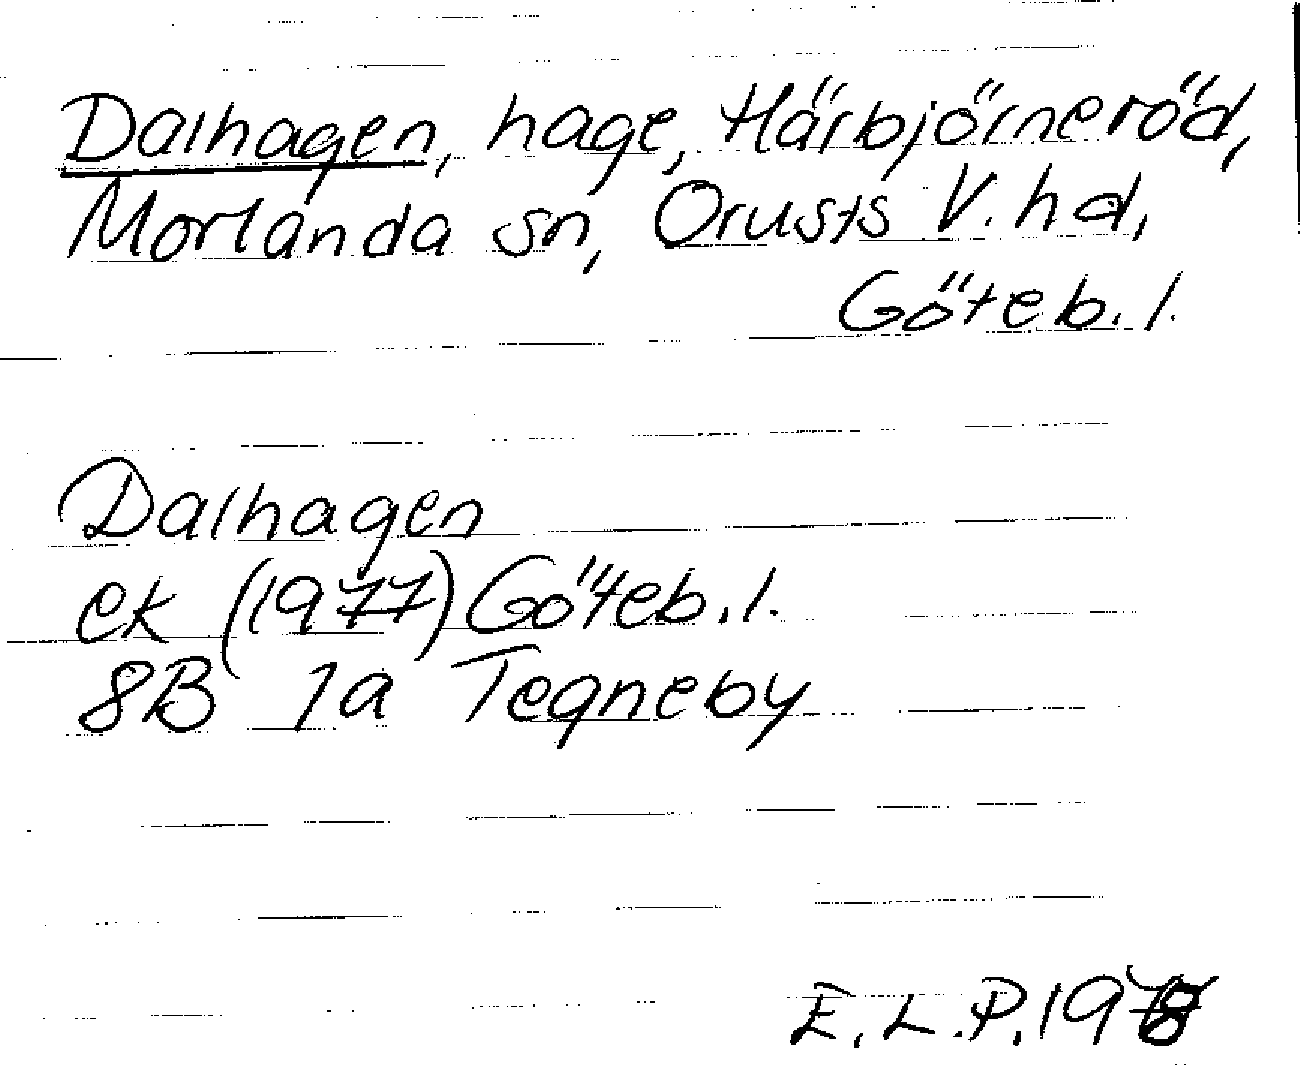 Dalhagen, hage, Härbjörneröd,
Morlanda sn, Orusts V. hd,
Göteb. l.
Dalhagen
ek (1977) Göteb. l.
8B 1a Tegneby
E. L. P. 1978